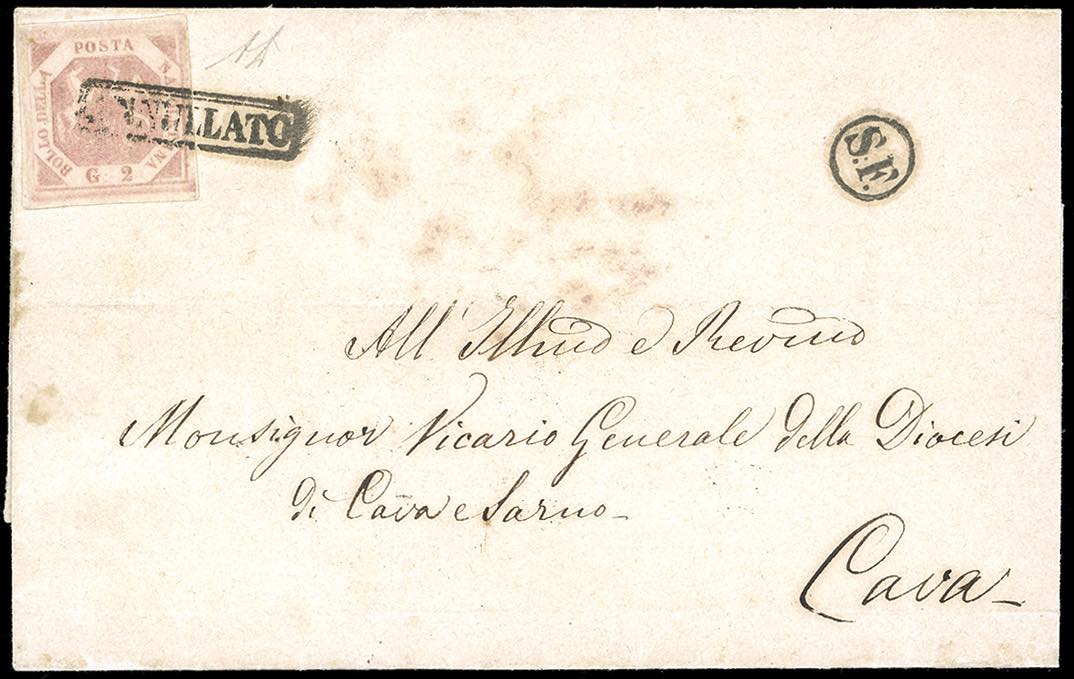 POSTA
NA
NA
BOLLO DELLA
G 2
ANNULLATO
S.F.
All' Illmo e Revmo
Monsignor Vicario Generale della Diocesi
di Cava e Sarno
Cava